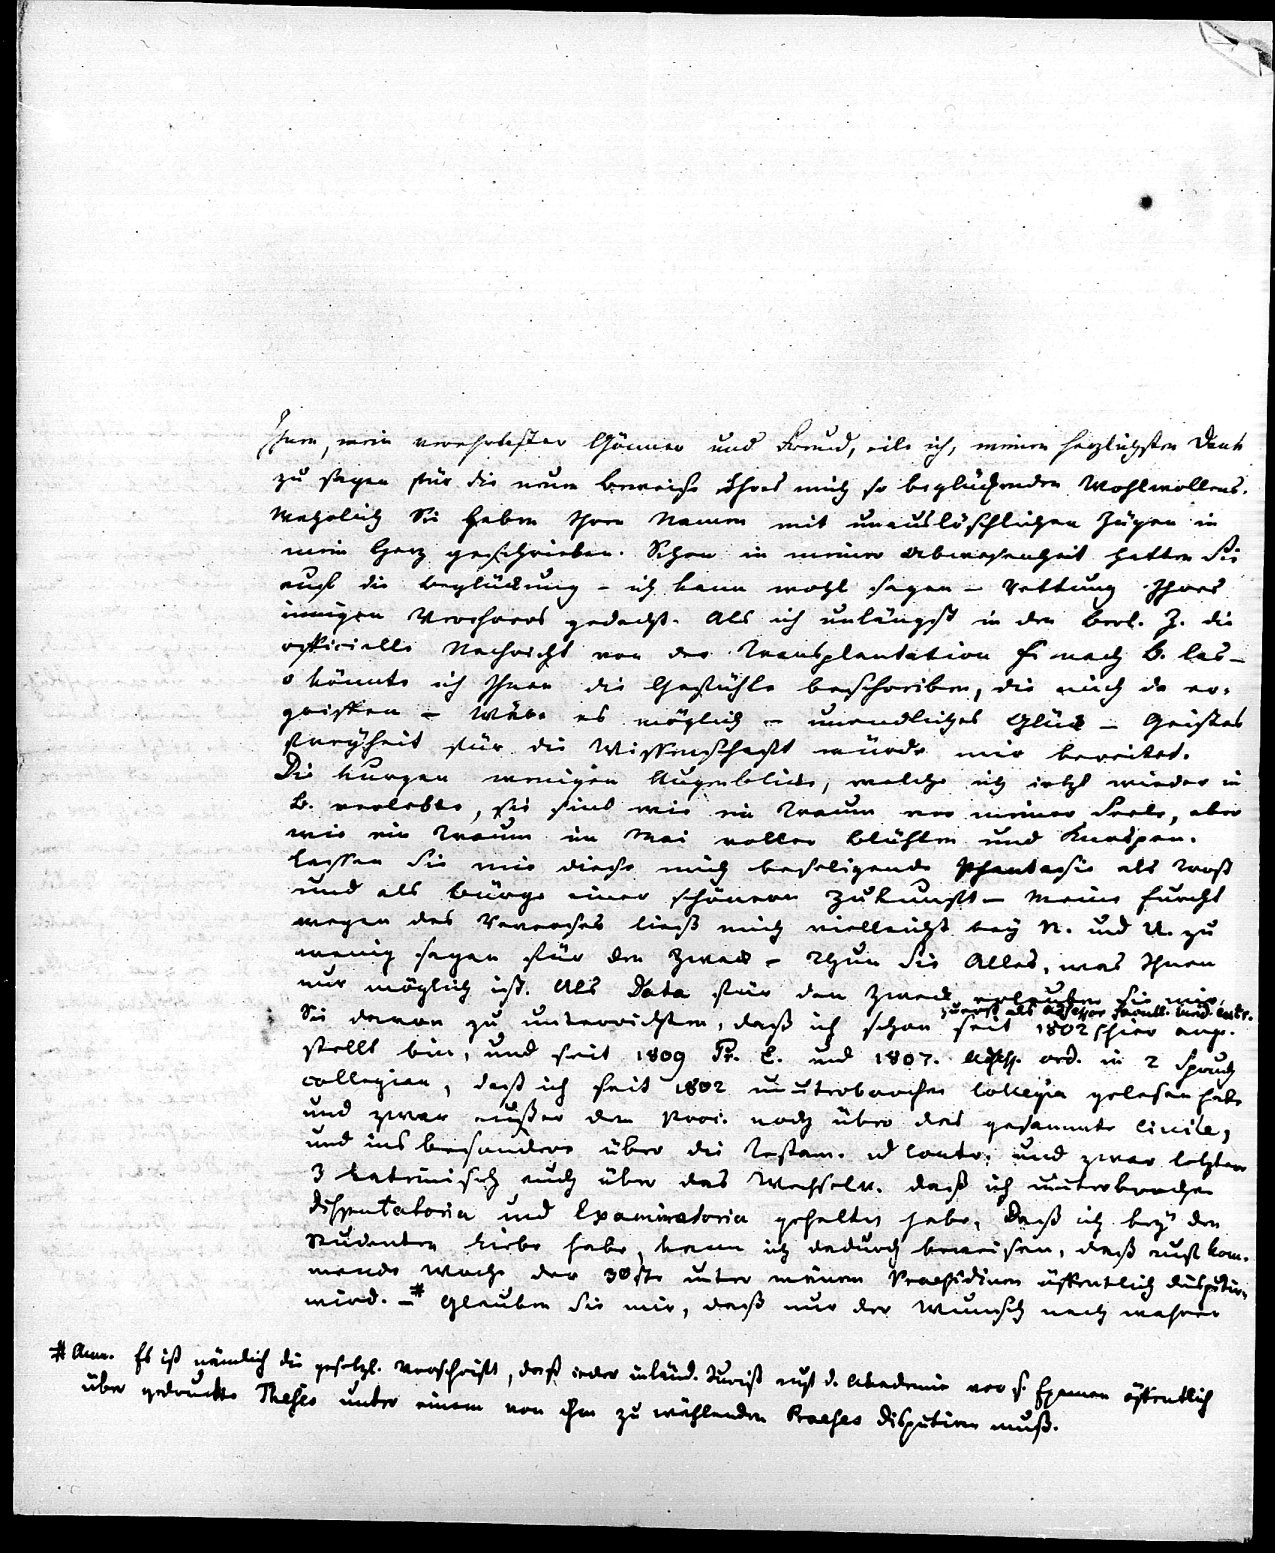 Ihnen, mein verehrtester Gönner und Freund, eile ich, meinen herzlichsten Dank
zu sagen für die neuen Beweise Ihres mich so beglückenden Wohlwollens.
Wahrlich Sie haben Ihren Namen mit unauslöschlichen Zügen in
mein Herz geschrieben. Schon in meiner Abwesenheit hatten Sie
auf die Beglückung – ich kann wohl sagen – Rettung Ihres
innigen Verehrers gedacht. Als ich unlängst in der Berl. Z. die
officielle Nachricht von der Transplantation nach B. las –
o könnte ich Ihnen die Gefühle beschreiben, die mich da er-
griffen – Wäre es möglich – unendliches Glück – Geistes
freyheit für die Wissenschaft würde mir bereitet.
Die kurzen wenigen Augenblicke, welche ich jetzt wieder in
B. verlebte, sie sind wie ein Traum vor meiner Seele, aber
wie ein Traum im Mai voller Blüthen und Knospen.
Lassen Sie mir diese mich beseligende Phantasie als Trost
und als Bürge einer schönern Zukunft – Meine Furcht
wegen des Reverses ließ mich vielleicht bey N. und U. zu
wenig sagen für den Zweck – Thun Sie Alles, was Ihnen
nur möglich ist. Als Data für den Zweck erlauben Sie mir,
zuerst als Assessor Facult.
Sie davon zu unterrichten, daß ich schon seit 1802 hier ange-
stellt bin, und seit 1809 Pr. E. und 1807. ord. in 2 Spruch
collegien, daß ich seit 1802 ununterbrochen Collegia gelesen habe
und zwar außer dem noch über das gesammte Civile,
und ins besondere über die Testam. und zwar letztere
3 lateinisch auch über das Wechselr. daß ich ununterbrochen
Disputatoria und Examinatoria gehalten habe. Daß ich bey den
Studenten Liebe habe, kann ich dadurch beweisen, daß auf kom-
mende Woche der 30ste unter meinem Praesidium öffentlich disputiren
wird. –# Glauben Sie mir, daß nur der Wunsch nach wahrer
# Anm. Es ist nämlich die gesetzl. Vorschrift, daß jeder inländ. Jurist auf d. Akademie vor s. Examen öffentlich
über gedruckte Theses unter einem von ihm zu wählenden Praeses disputiren muß.